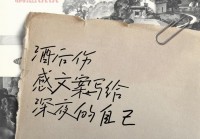 酒后伤
感文案写给
深夜的自己